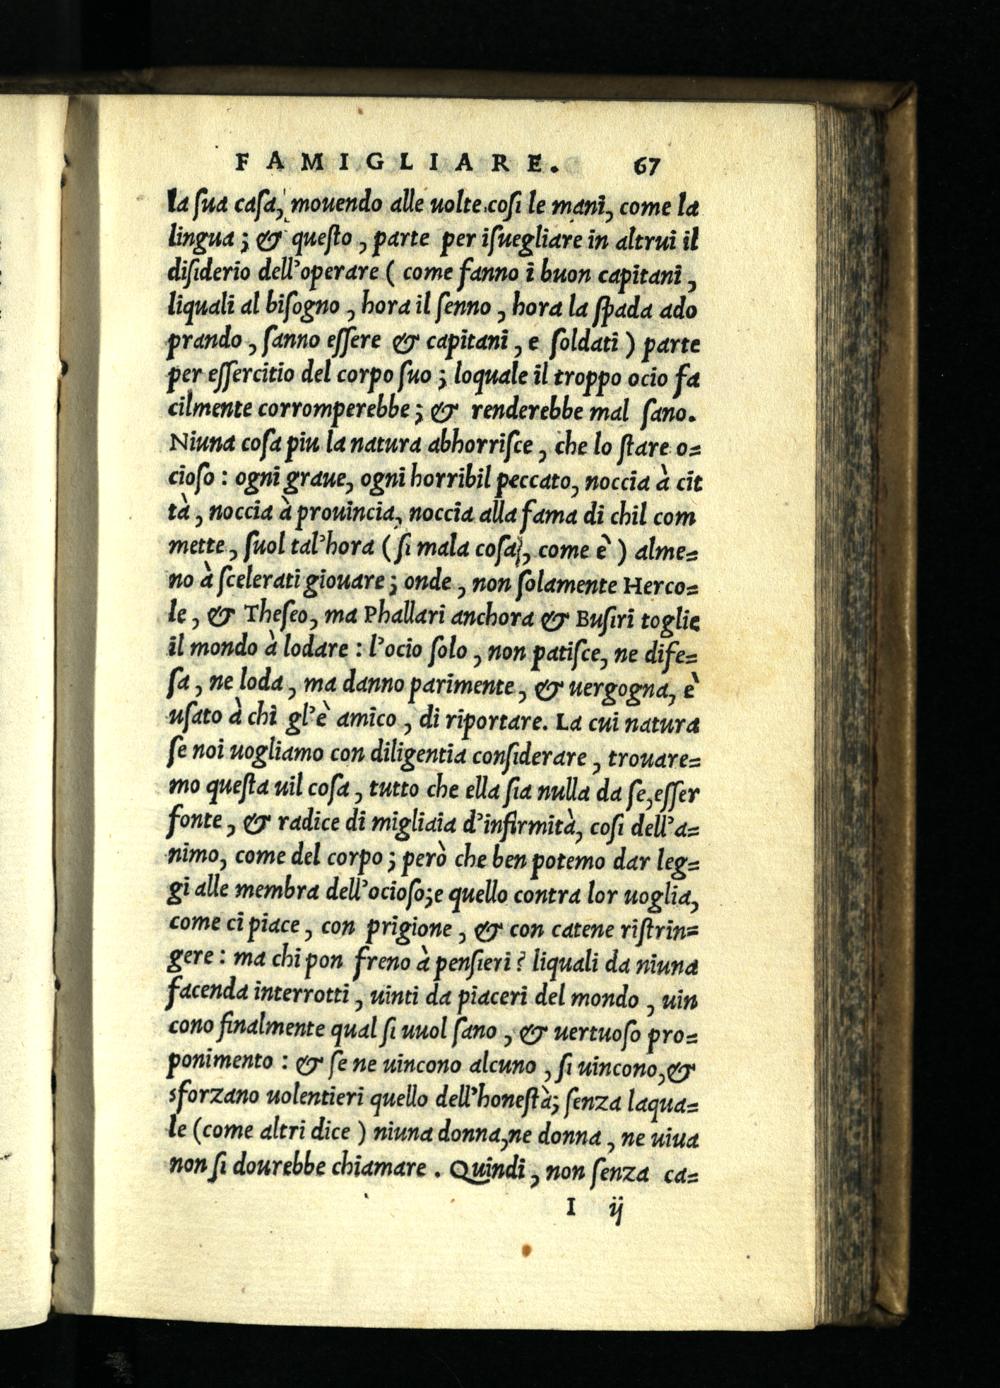 FAMIGLIARE. 67
la sua casa, mouendo alle uolte cosi le mani, come la
lingua ; & questo , parte per isuegliare in altrui il
disiderio dell'operare ( come fanno i buon capitani ,
liquali al bisogno , hora il senno , hora la spada ado
prando , sanno essere & capitani , e soldati ) parte
per essercitio del corpo suo ; loquale il troppo ocio fa
cilmente corromperebbe ; & renderebbe mal sano.
Niuna cosa piu la natura abhorrisce , che lo stare o=
cioso : ogni graue, ogni horribil peccato, noccia à cit
tà , noccia à prouincia, noccia alla fama di chil com
mette , suol tal'hora ( si mala cosa, come è ) alme=
no à scelerati giouare ; onde , non solamente Herco=
le , & Theseo, ma Phallari anchora & Busiri toglie
il mondo à lodare : l'ocio solo , non patisce, ne dife=
sa , ne loda , ma danno parimente , & uergogna, è
usato à chi gl'è amico , di riportare. La cui natura
se noi uogliamo con diligentia considerare , trouare=
mo questa uil cosa , tutto che ella sia nulla da se,esser
fonte , & radice di migliaia d'infirmità, cosi dell'a=
nimo, come del corpo ; però che ben potemo dar leg=
gi alle membra dell'ocioso;e quello contra lor uoglia,
come ci piace , con prigione , & con catene ristrin=
gere : ma chi pon freno à pensieri ? liquali da niuna
facenda interrotti , uinti da piaceri del mondo , uin
cono finalmente qual si uuol sano , & uertuoso pro=
ponimento : & se ne uincono alcuno , si uincono,&
sforzano uolentieri quello dell'honestà; senza laqua=
le (come altri dice ) niuna donna,ne donna , ne uiua
non si dourebbe chiamare . Quindi , non senza ca=
I ij